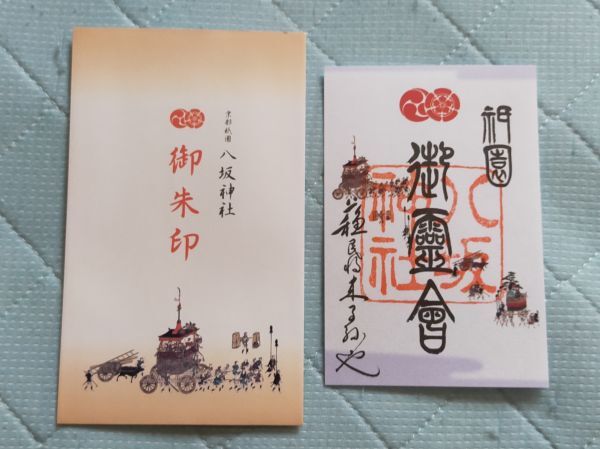 京都祇園
八坂神社
御朱印
祇園
御靈會
八坂
神社
蘇民将来子孫也